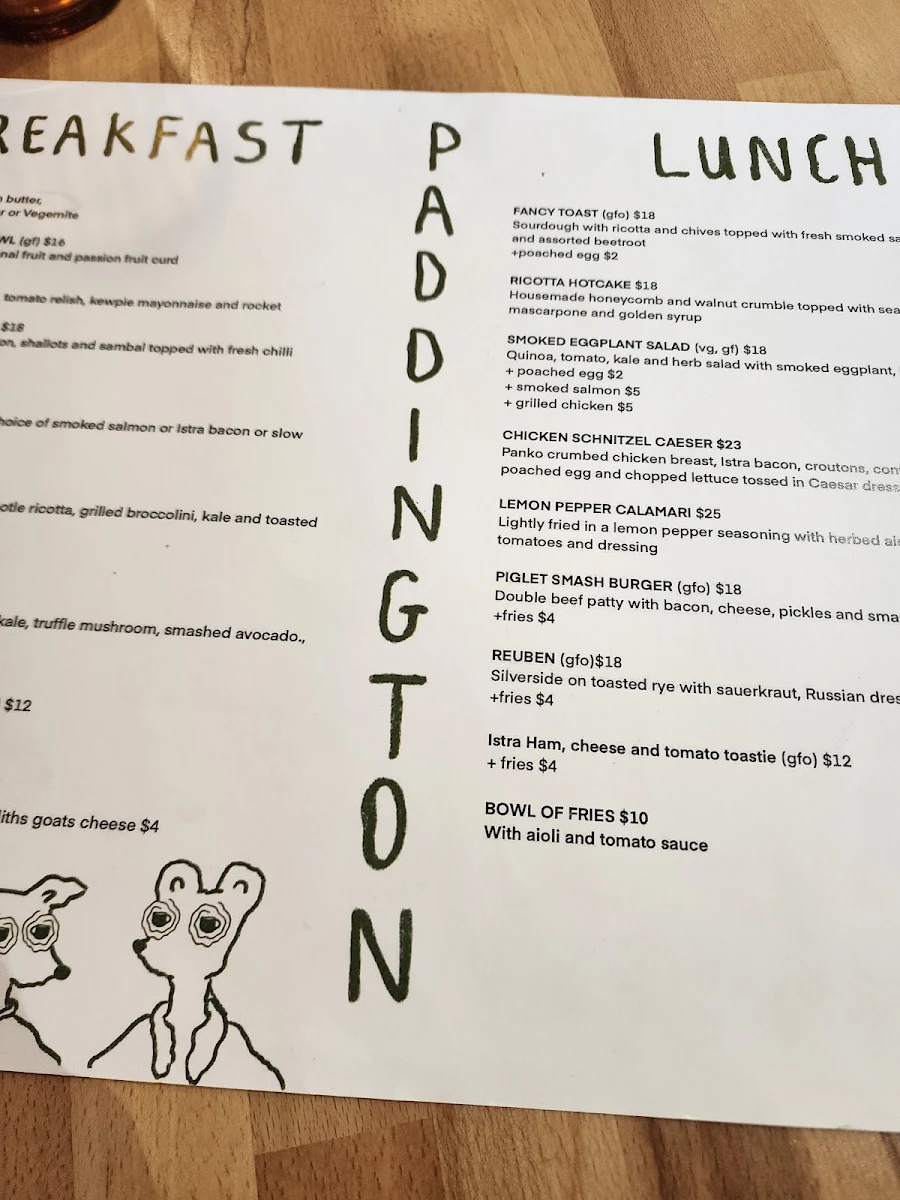 BREAKFAST
butter,
or Vegemite
(gf) $16
fruit and passion fruit curd
tomato relish, kewpie mayonnaise and rocket
$18
shallots and sambal topped with fresh chilli
of smoked salmon or Istra bacon or slow
ricotta, grilled broccolini, kale and toasted
kale, truffle mushroom, smashed avocado.,
$12
goats cheese $4
PADDINGTON
LUNCH
FANCY TOAST (gfo) $18
Sourdough with ricotta and chives topped with fresh smoked
and assorted beetroot
+poached egg $2
RICOTTA HOTCAKE $18
Housemade honeycomb and walnut crumble topped with
mascarpone and golden syrup
SMOKED EGGPLANT SALAD (vg, gf) $18
Quinoa, tomato, kale and herb salad with smoked eggplant,
+ poached egg $2
+ smoked salmon $5
+ grilled chicken $5
CHICKEN SCHNITZEL CAESER $23
Panko crumbed chicken breast, Istra bacon, croutons,
poached egg and chopped lettuce tossed in Caesar
LEMON PEPPER CALAMARI $25
Lightly fried in a lemon pepper seasoning with herbed
tomatoes and dressing
PIGLET SMASH BURGER (gfo) $18
Double beef patty with bacon, cheese, pickles and
+fries $4
REUBEN (gfo)$18
Silverside on toasted rye with sauerkraut, Russian
+fries $4
Istra Ham, cheese and tomato toastie (gfo) $12
+ fries $4
BOWL OF FRIES $10
With aioli and tomato sauce